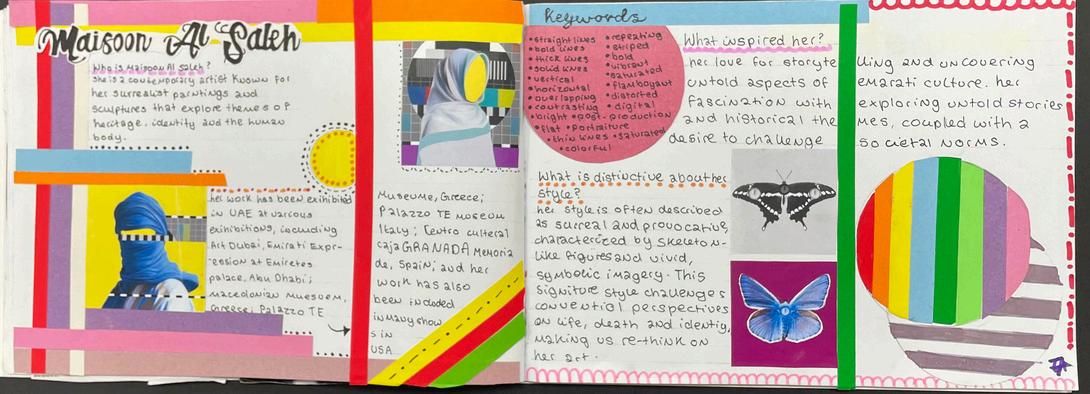 Maisoon Al Saleh
Who is Maisoon Al Saleh?
She is a contemporary artist known for
her surrealist paintings and
sculptures that explore themes of
heritage, identity and the human
body.
her work has been exhibited
in UAE at various
exhibitions, including
Art Dubai, Emirati Expr-
ession at Emirates
palace, Abu Dhabi;
macedonian museum,
Greece; Palazzo TE
Museume, Greece;
Palazzo TE museum
Italy; Centro cultural
caja GRANADA Memoria
de, Spain; and her
work has also
been included
in many show
s in
USA
Keywords
•straight lines
•bold lines
•thick lines
•solid lines
•vertical
•horizontal
•overlapping
•contrasting
•bright
•flat •portraiture
•thin lines •saturated
•colorful
•repeating
•striped
•bold
•vibrant
•saturated
•flamboyant
•distorted
•digital
•post-production
What inspired her?
her love for storyte lling and uncovering
untold aspects of emarati culture. her
fascination with exploring untold stories
and historical the mes, coupled with a
desire to challenge societal norms.
What is distinctive about her
style?
her style is often described
as surreal and provocative,
characterized by skeleton-
like figures and vivid,
symbolic imagery. This
signiture style challenges
convential perspectives
on life, death and identiy,
making us re-think on
her art.